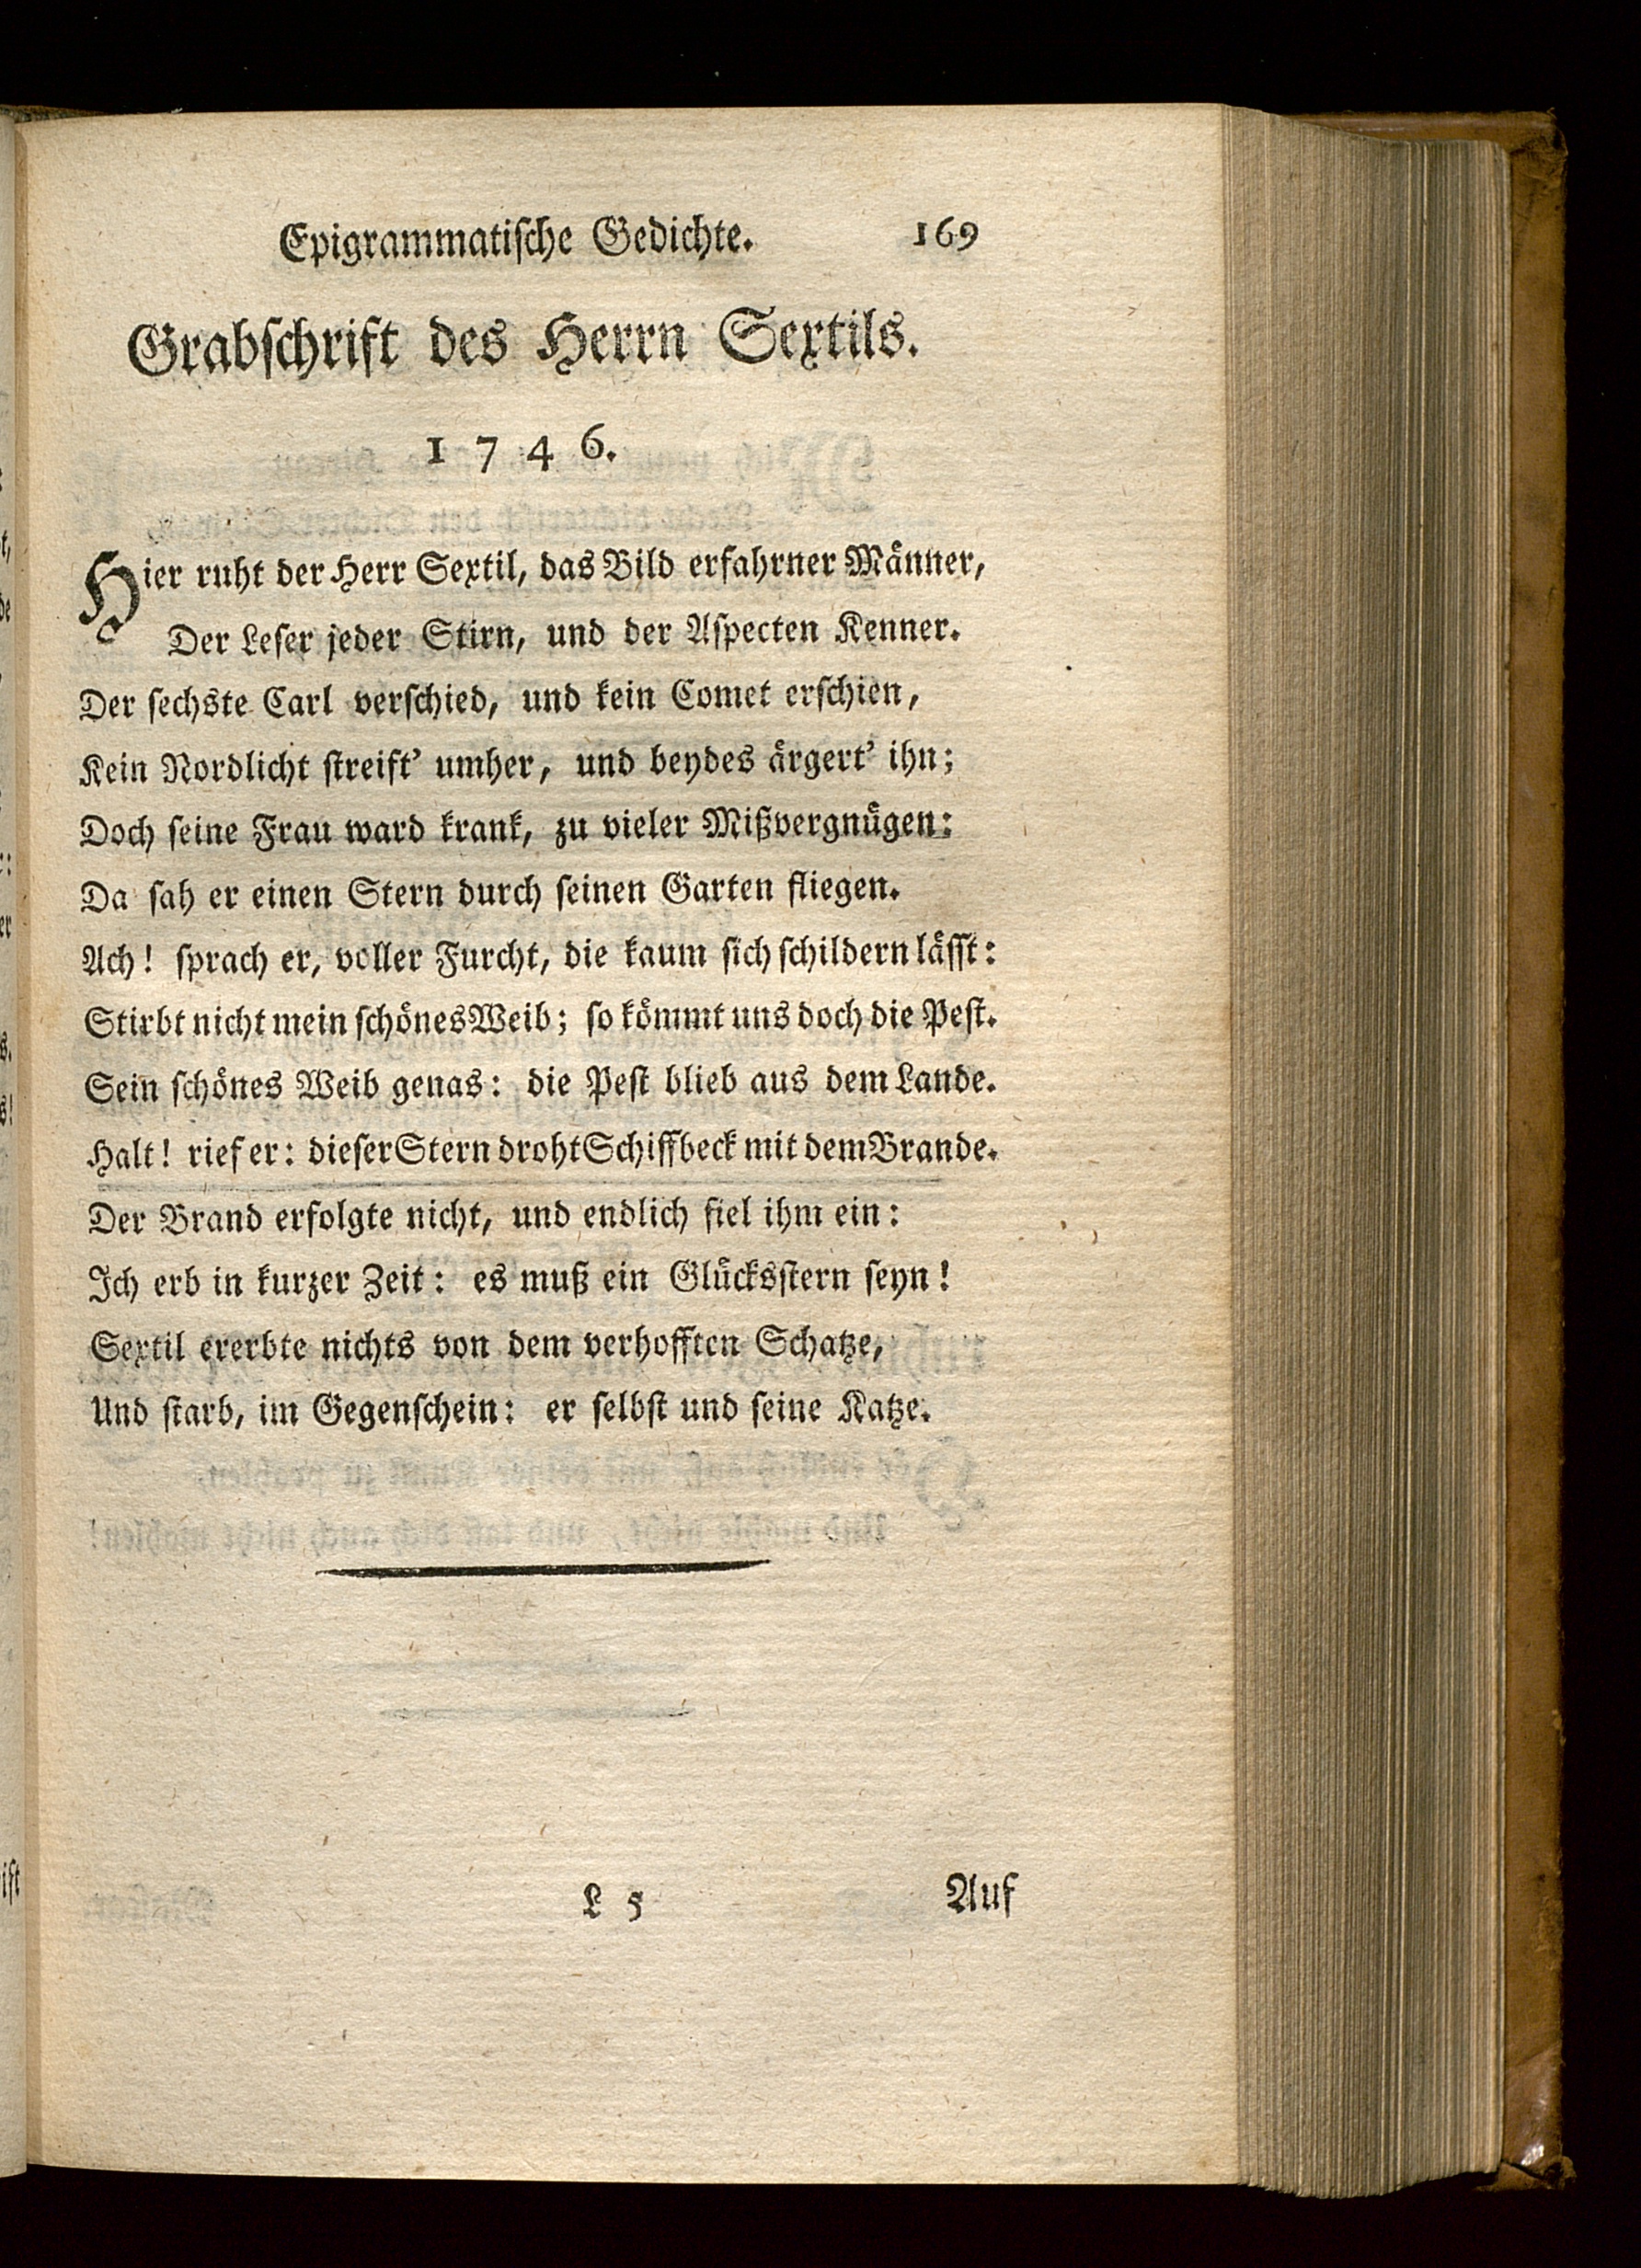 Epigrammatiſche Gedichte. 169
Grabſchrift des Herrn Sextils.
1 7 4 6.
Hier ruht der Herr Sextil, das Bild erfahrner Männer,
Der Leſer jeder Stirn, und der Aſpecten Kenner.
Der ſechste Carl verſchied, und kein Comet erſchien,
Kein Nordlicht ſtreift' umher, und beydes ärgert' ihn;
Doch ſeine Frau ward krank, zu vieler Mißvergnügen:
Da ſah er einen Stern durch ſeinen Garten fliegen.
Ach! ſprach er, voller Furcht, die kaum ſich ſchildern läſſt:
Stirbt nicht mein ſchönes Weib; ſo kömmt uns doch die Peſt.
Sein ſchönes Weib genas: die Peſt blieb aus dem Lande.
Halt! rief er: dieſer Stern droht Schiffbeck mit dem Brande.
Der Brand erfolgte nicht, und endlich fiel ihm ein:
Ich erb in kurzer Zeit: es muß ein Glücksſtern ſeyn!
Sextil ererbte nichts von dem verhofften Schatze,
Und ſtarb, im Gegenſchein: er ſelbſt und ſeine Katze.
L 5 Auf